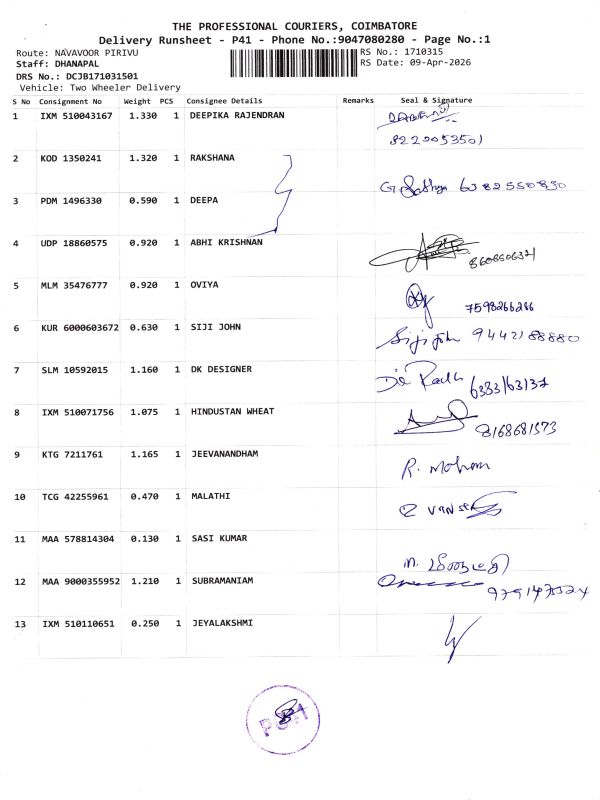 THE PROFESSIONAL COURIERS, COIMBATORE
Delivery Runsheet - P41 - Phone No.:9047080280 - Page No.:1
Route: NAVAVOOR PIRIVU
Staff: DHANAPAL
DRS No.: DCJB171031501
Vehicle: Two Wheeler Delivery
RS No.: 1710315
RS Date: 09-Apr-2026
S No Consignment No Weight PCS Consignee Details Remarks Seal & Signature
1 IXM 510043167 1.330 1 DEEPIKA RAJENDRAN
8222053501
2 KOD 1350241 1.320 1 RAKSHANA
G Sathya 6382550830
3 PDM 1496330 0.590 1 DEEPA
4 UDP 18860575 0.920 1 ABHI KRISHNAN
8608506321
5 MLM 35476777 0.920 1 OVIYA
7598266286
6 KUR 6000603672 0.630 1 SIJI JOHN Siji john 9442188880
7 SLM 10592015 1.160 1 DK DESIGNER
6383163137
8 IXM 510071756 1.075 1 HINDUSTAN WHEAT
8168681573
9 KTG 7211761 1.165 1 JEEVANANDHAM R. Mohan
10 TCG 42255961 0.470 1 MALATHI
11 MAA 578814304 0.130 1 SASI KUMAR
12 MAA 9000355952 1.210 1 SUBRAMANIAM
13 IXM 510110651 0.250 1 JEYALAKSHMI